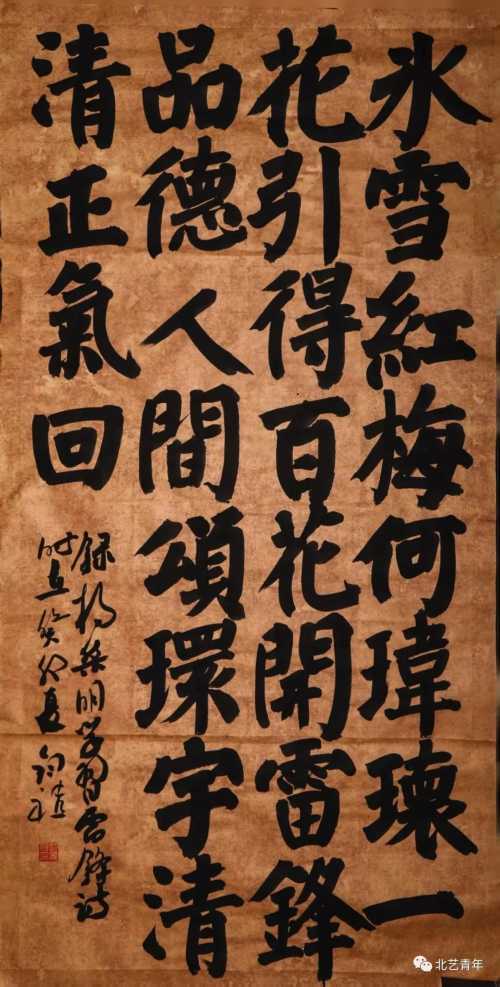 氷雪紅梅何瑋瓌一
花引得百花開雷鋒
品德人間頌環宇清
清正氣回
錄楊明学習雷鋒詩
时在癸卯夏
北艺青年